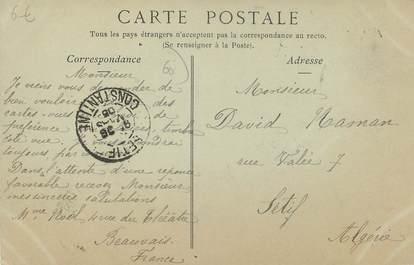 6€
CARTE POSTALE
Tous les pays étrangers n'acceptent pas la correspondance au recto.
(Se renseigner à la Poste).
Correspondance
Monsieur
Je viens vous demander de
bien vouloir des
cartes vues de
préférence timbre
côté vue.
toujours par
Dans l'attente d'une réponse
favorable recevez Monsieur
mes sincères salutations
Mme Noël 4 rue du Théâtre
Beauvais
France
SETIF
CONSTANTINE
Adresse
Monsieur
David Naman
rue Valée 7
Sétif
Algérie